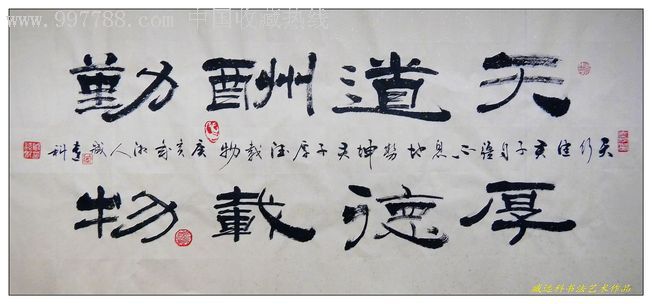 www.997788.com 中国收藏热线
天道酬勤
天行健君子自強不息地勢坤君子厚德載物
厚德載物
臧运科书法艺术作品